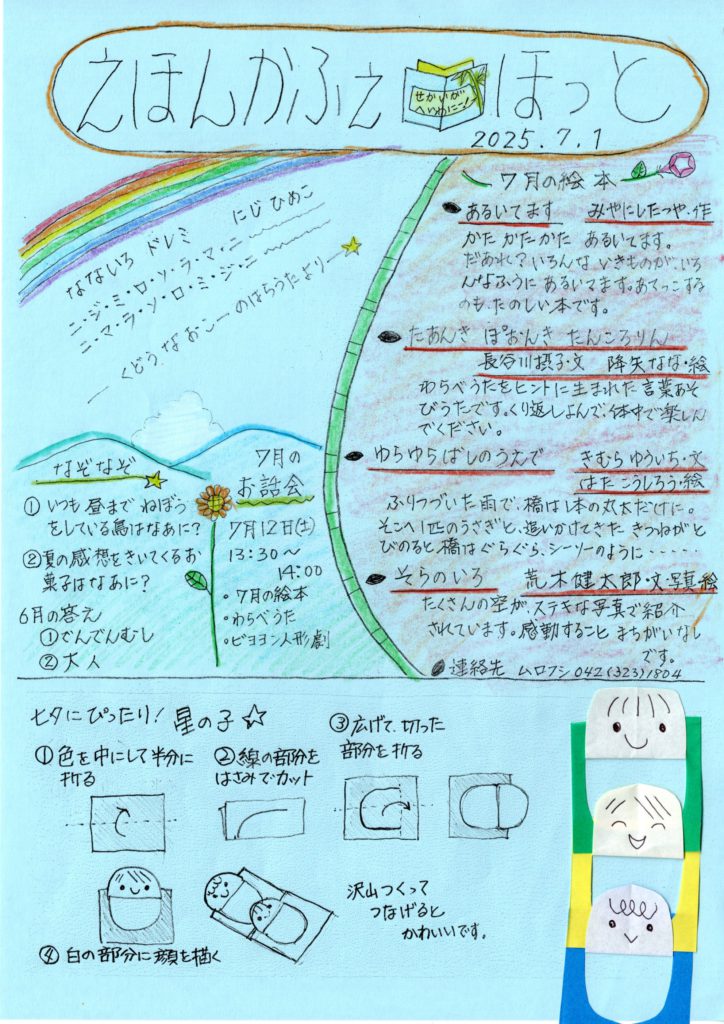 えほんかふぇ ほっと
せかいが
へいわに一!
2025.7.1
なないろ ドレミ にじ ひめこ
ニ・ジ・ミ・ロ・ソ・ラ・マ・ニ〜〜
ニ・マ・ラ・ソ・ロ・ミ・ジ・ニ〜〜
― くどう なおこ ― のはらうたより ―
なぞなぞ
① いつも 昼まで ねぼう
をしている鳥はなあに?
②夏の感想をきいてくるお
菓子はなあに?
6月の答え
①でんでんむし
② 大人
7月の
お話会
7月12日(土)
13:30〜
14:00
・7月の絵本
・わらべうた
・ピヨヨン人形劇
7月の絵本
あるいてます みやにしたつや・作
かた かたかた あるいてます。
だあれ?いろんな いきものが、いろ
んなふうに あるいてます。あてっこする
のも、たのしい本です。
たあんき ぽおんき たんころりん
長谷川摂子・文 降矢なな・絵
わらべうたをヒントに生まれた 言葉あそ
びうたです。くり返しよんで、体中で楽しん
でください。
ゆらゆらばしのうえで きむら ゆういち・文
はた こうしろう・絵
ふりつづいた雨で、橋は1本の丸太だけに。
そこへ1匹のうさぎと、追いかけてきた きつねがと
びのると、橋はぐらぐら、シーソーのように・・・・・・
そらのいろ 荒木健太郎・文・写真・絵
たくさんの空が、ステキな写真で紹介
されています。感動すること まちがいなし
です。
連絡先 ムロフシ 042(323)1804
七夕にぴったり! 星の子☆
①色を中にして半分に
折る
②線の部分を
はさみでカット
③広げて、切った
部分を折る
④白の部分に顔を描く
沢山つくって
つなげると
かわいいです。